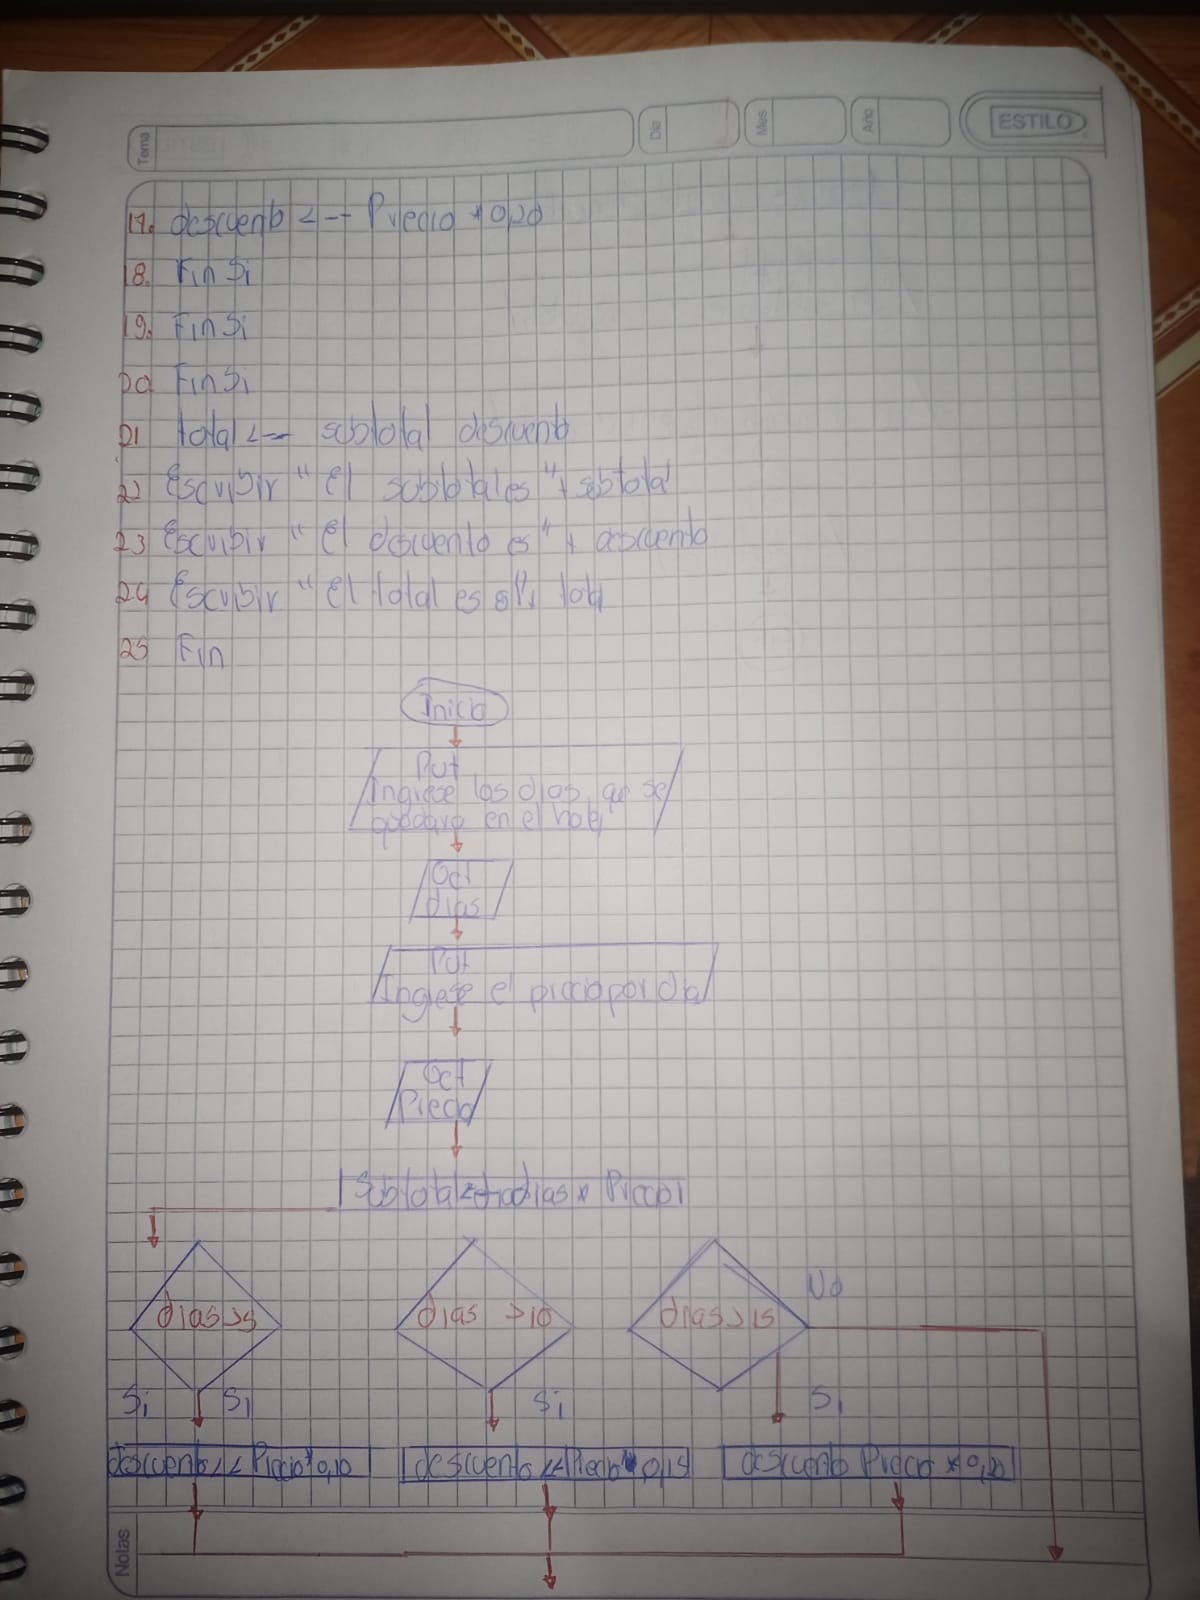 Tema
Dia
Mes
Año
ESTILO
17. descuento <-- Precio * 0,20
18. Fin Si
19. Fin Si
20 Fin Si
21 total <-- subtotal descuento
22 Escribir " El subtotal es " + subtotal
23 Escribir " El descuento es " + descuento
24 Escribir " El total es
25 Fin
Inicio
Put
Ingrese los dias que se
quedara en el hotel
Oct
dias
Put
Ingrese el precio por Dia
Oct
Precio
Subtotal dias * Precio
dias >5
dias >10
dias >15
No
Si
Si
Si
Si
descuento << Precio * 0,10
descuento << Precio * 0,15
descuento Precio * 0,20
Notas